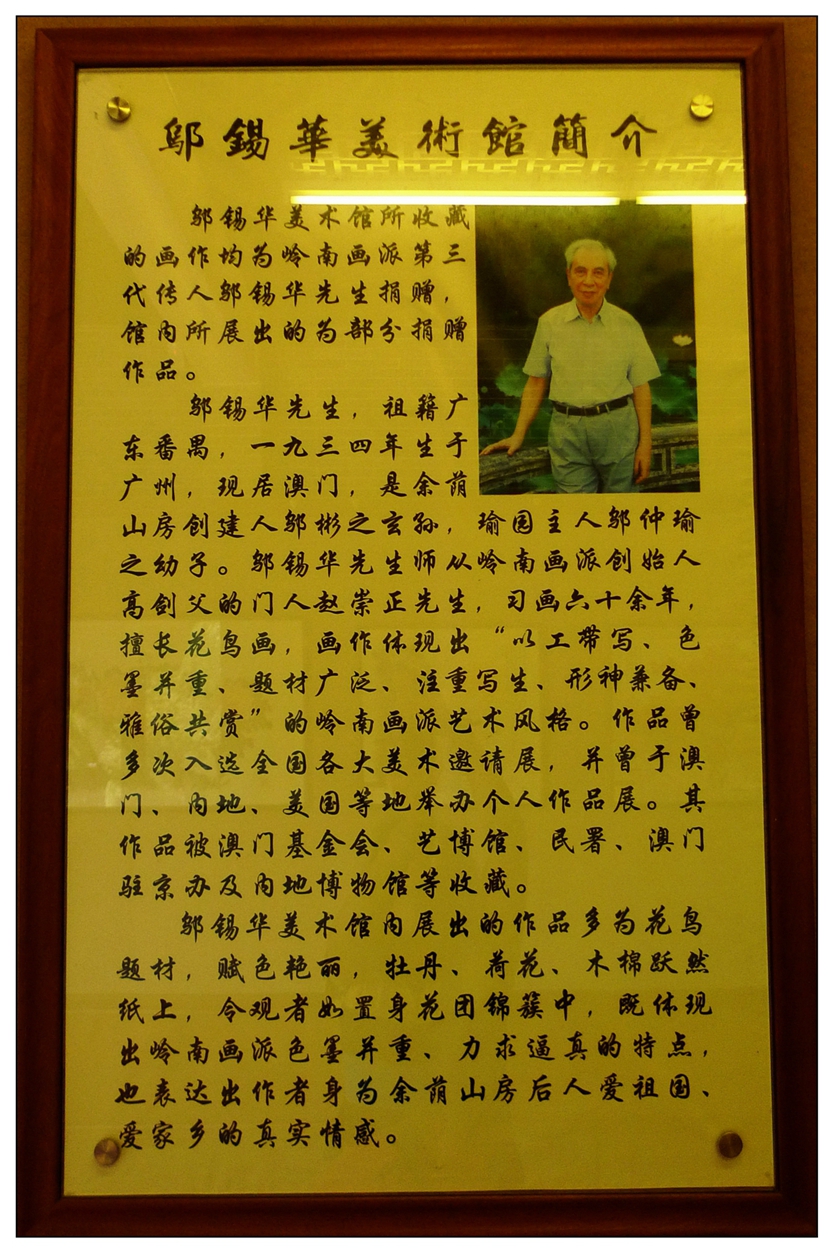 鄔錫華美術館簡介
邬锡华美术馆所收藏
的画作均为岭南画派第三
代传人邬锡华先生捐赠，
馆内所展出的为部分捐赠
作品。
邬锡华先生，祖籍广
东番禺，一九三四年生于
广州，现居澳门，是余荫
山房创建人邬彬之玄孙，瑜园主人邬仲瑜
之幼子。邬锡华先生师从岭南画派创始人
高剑父的门人赵崇正先生，习画六十余年，
擅长花鸟画，画作体现出“以工带写、色
墨并重、题材广泛、注重写生、形神兼备、
雅俗共赏”的岭南画派艺术风格。作品曾
多次入选全国各大美术邀请展，并曾于澳
门、内地、美国等地举办个人作品展。其
作品被澳门基金会、艺博馆、民署、澳门
驻京办及内地博物馆等收藏。
邬锡华美术馆内展出的作品多为花鸟
题材，赋色艳丽，牡丹、荷花、木棉跃然
纸上，令观者如置身花团锦簇中，既体现
出岭南画派色墨并重、力求逼真的特点，
也表达出作者身为余荫山房后人爱祖国、
爱家乡的真实情感。